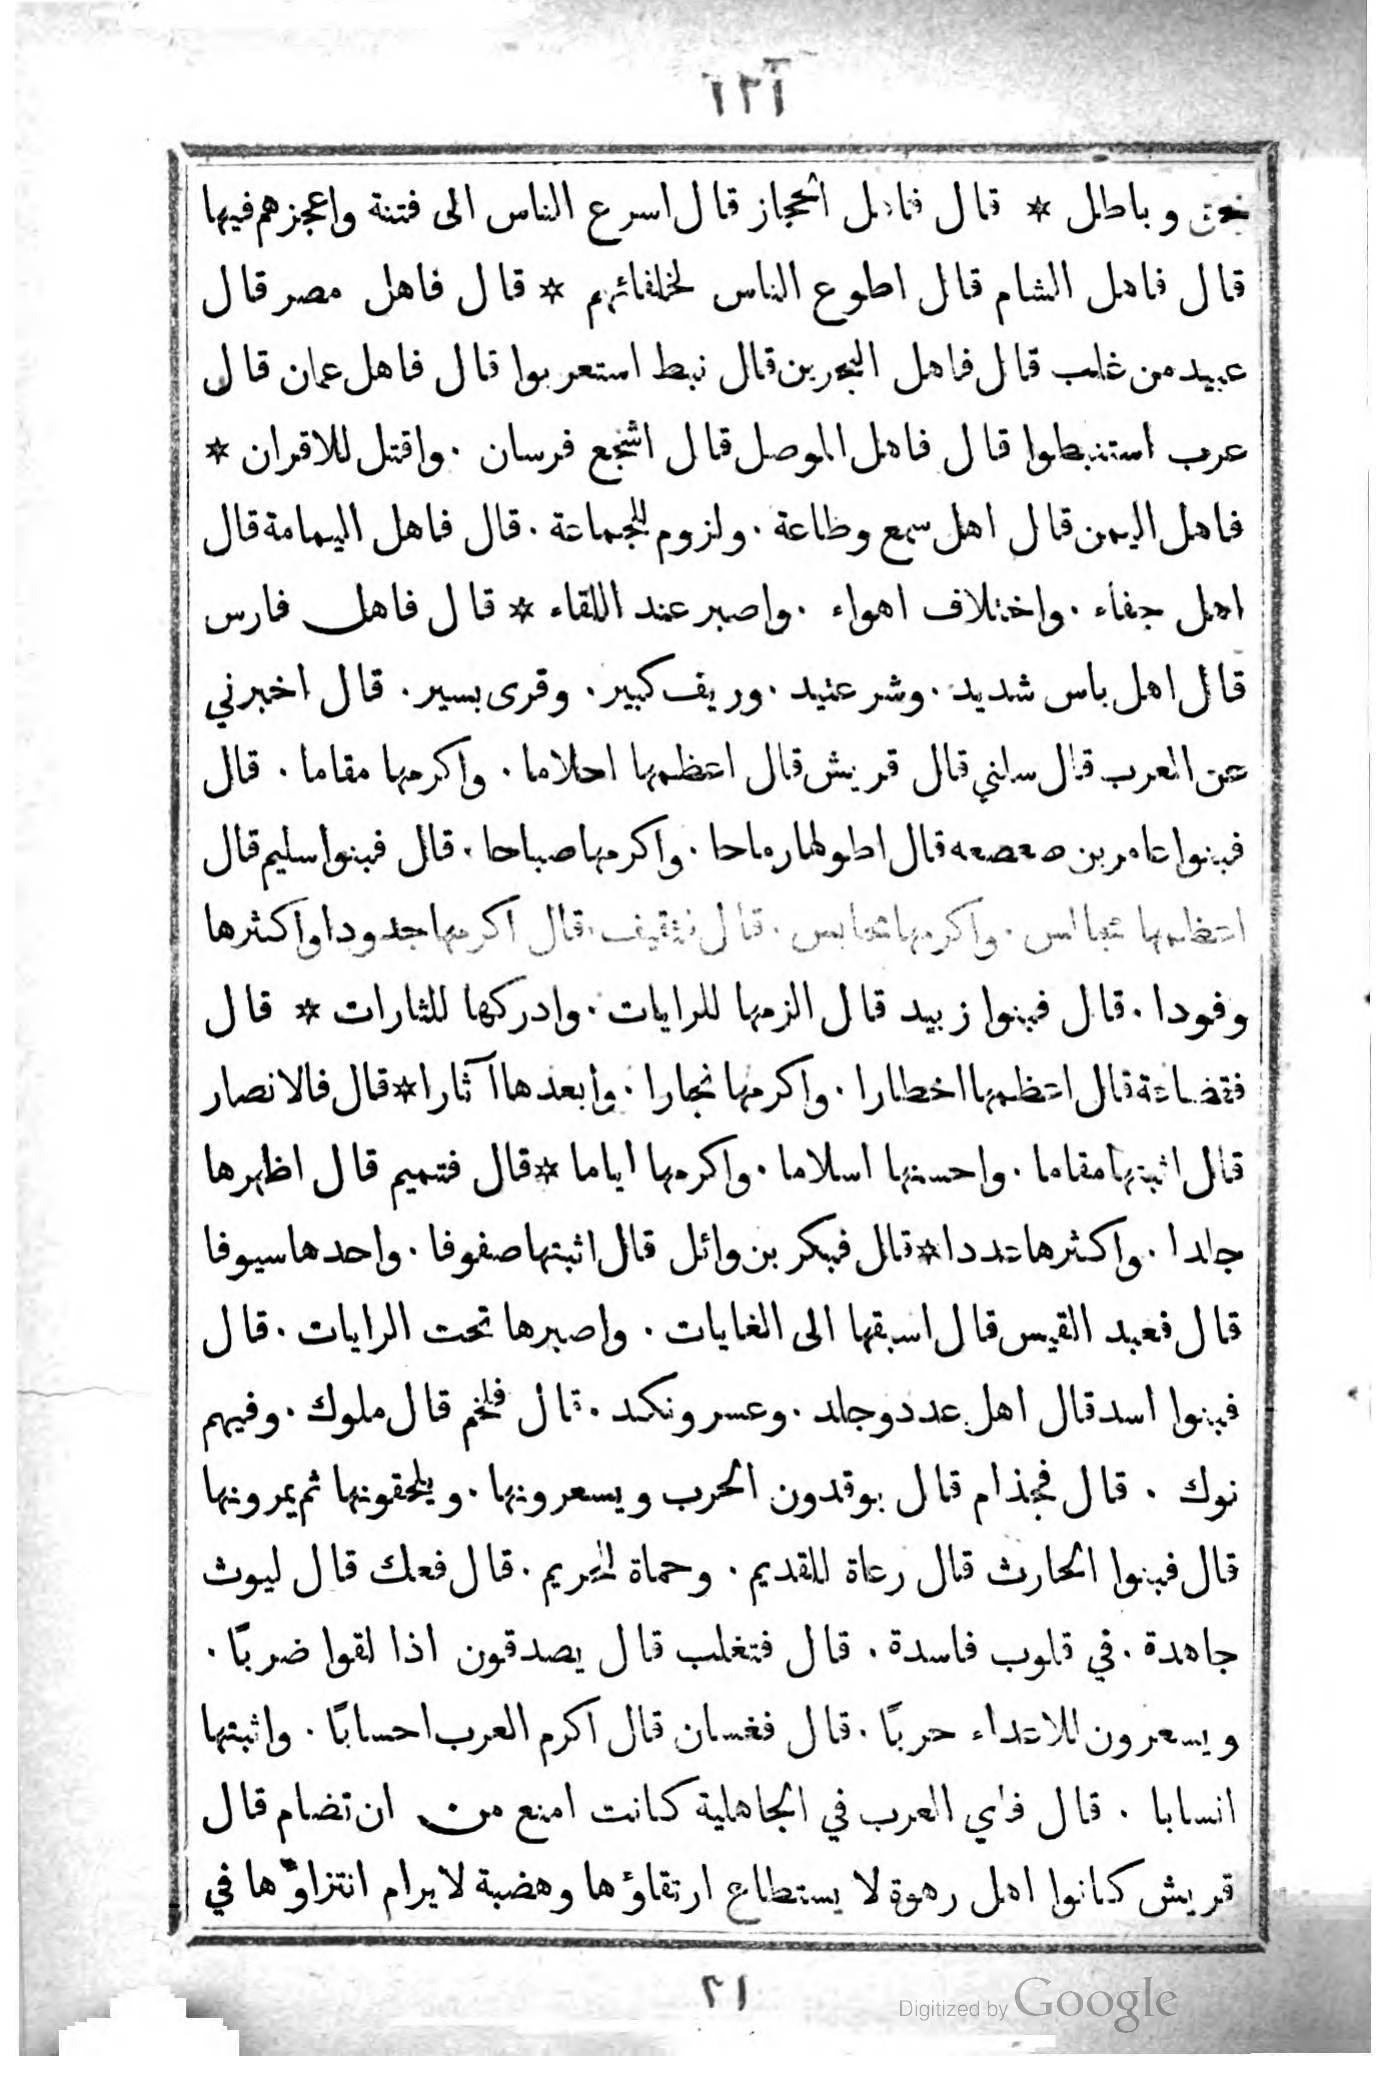 ١٢١
بحق وباطل * قال فاهل الحجاز قال اسرع الناس الى فتنة واعجزهم فيها
قال فاهل الشام قال اطوع الناس لخلفائهم * قال فاهل مصر قال
عبيد من غلب قال فاهل البحرين قال نبط استعربوا قال فاهل عمان قال
عرب استنبطوا قال فاهل الموصل قال اشجع فرسان . واقتل للاقران *
فاهل اليمن قال اهل سمع وطاعة . ولزوم للجماعة . قال فاهل اليمامة قال
اهل جفاء . واختلاف اهواء . واصبر عند اللقاء * قال فاهل فارس
قال اهل باس شديد . وشر عتيد . وريف كبير . وقرى يسير . قال اخبرني
عن العرب قال سلني قال قريش قال اعظمها احلاما . واكرمها مقاما . قال
فبنوا عامر بن صعصعه قال اطولها رماحا . واكرمها صباحا . قال فبنوا سليم قال
اعظمها مجالس . واكرمها محابس . قال فثقيف . قال اكرمها جدودا واكثرها
وفودا . قال فبنوا زبيد قال الزمها للرايات . وادركها للثارات * قال
فقضاعة قال اعظمها اخطارا . واكرمها نجارا . وابعدها آثارا * قال فالانصار
قال اثبتها مقاما . واحسنها اسلاما . واكرمها اياما * قال فتميم قال اظهرها
جلدا . واكثرها عددا * قال فبكر بن وائل قال اثبتها صفوفا . واحدها سيوفا
قال فعبد القيس قال اسبقها الى الغايات . واصبرها تحت الرايات . قال
فبنوا اسد قال اهل عدد وجلد . وعسر ونكد . قال فلخم قال ملوك . وفيهم
نوك . قال فجذام قال يوقدون الحرب ويسعرونها . ويلحقونها ثم يمرونها
قال فبنوا الحارث قال رعاة للقديم . وحماة للحريم . قال فعك قال ليوث
جاهدة . في قلوب فاسدة . قال فتغلب قال يصدقون اذا لقوا ضربًا .
ويسعرون للاعداء حربًا . قال فغسان قال اكرم العرب احسابًا . واثبتها
انسابا . قال فاي العرب في الجاهلية كانت امنع من ان تضام قال
قريش كانوا اهل رهوة لا يستطاع ارتقاؤها وهضبة لا يرام انتزاؤها في
٢١
Digitized by Google